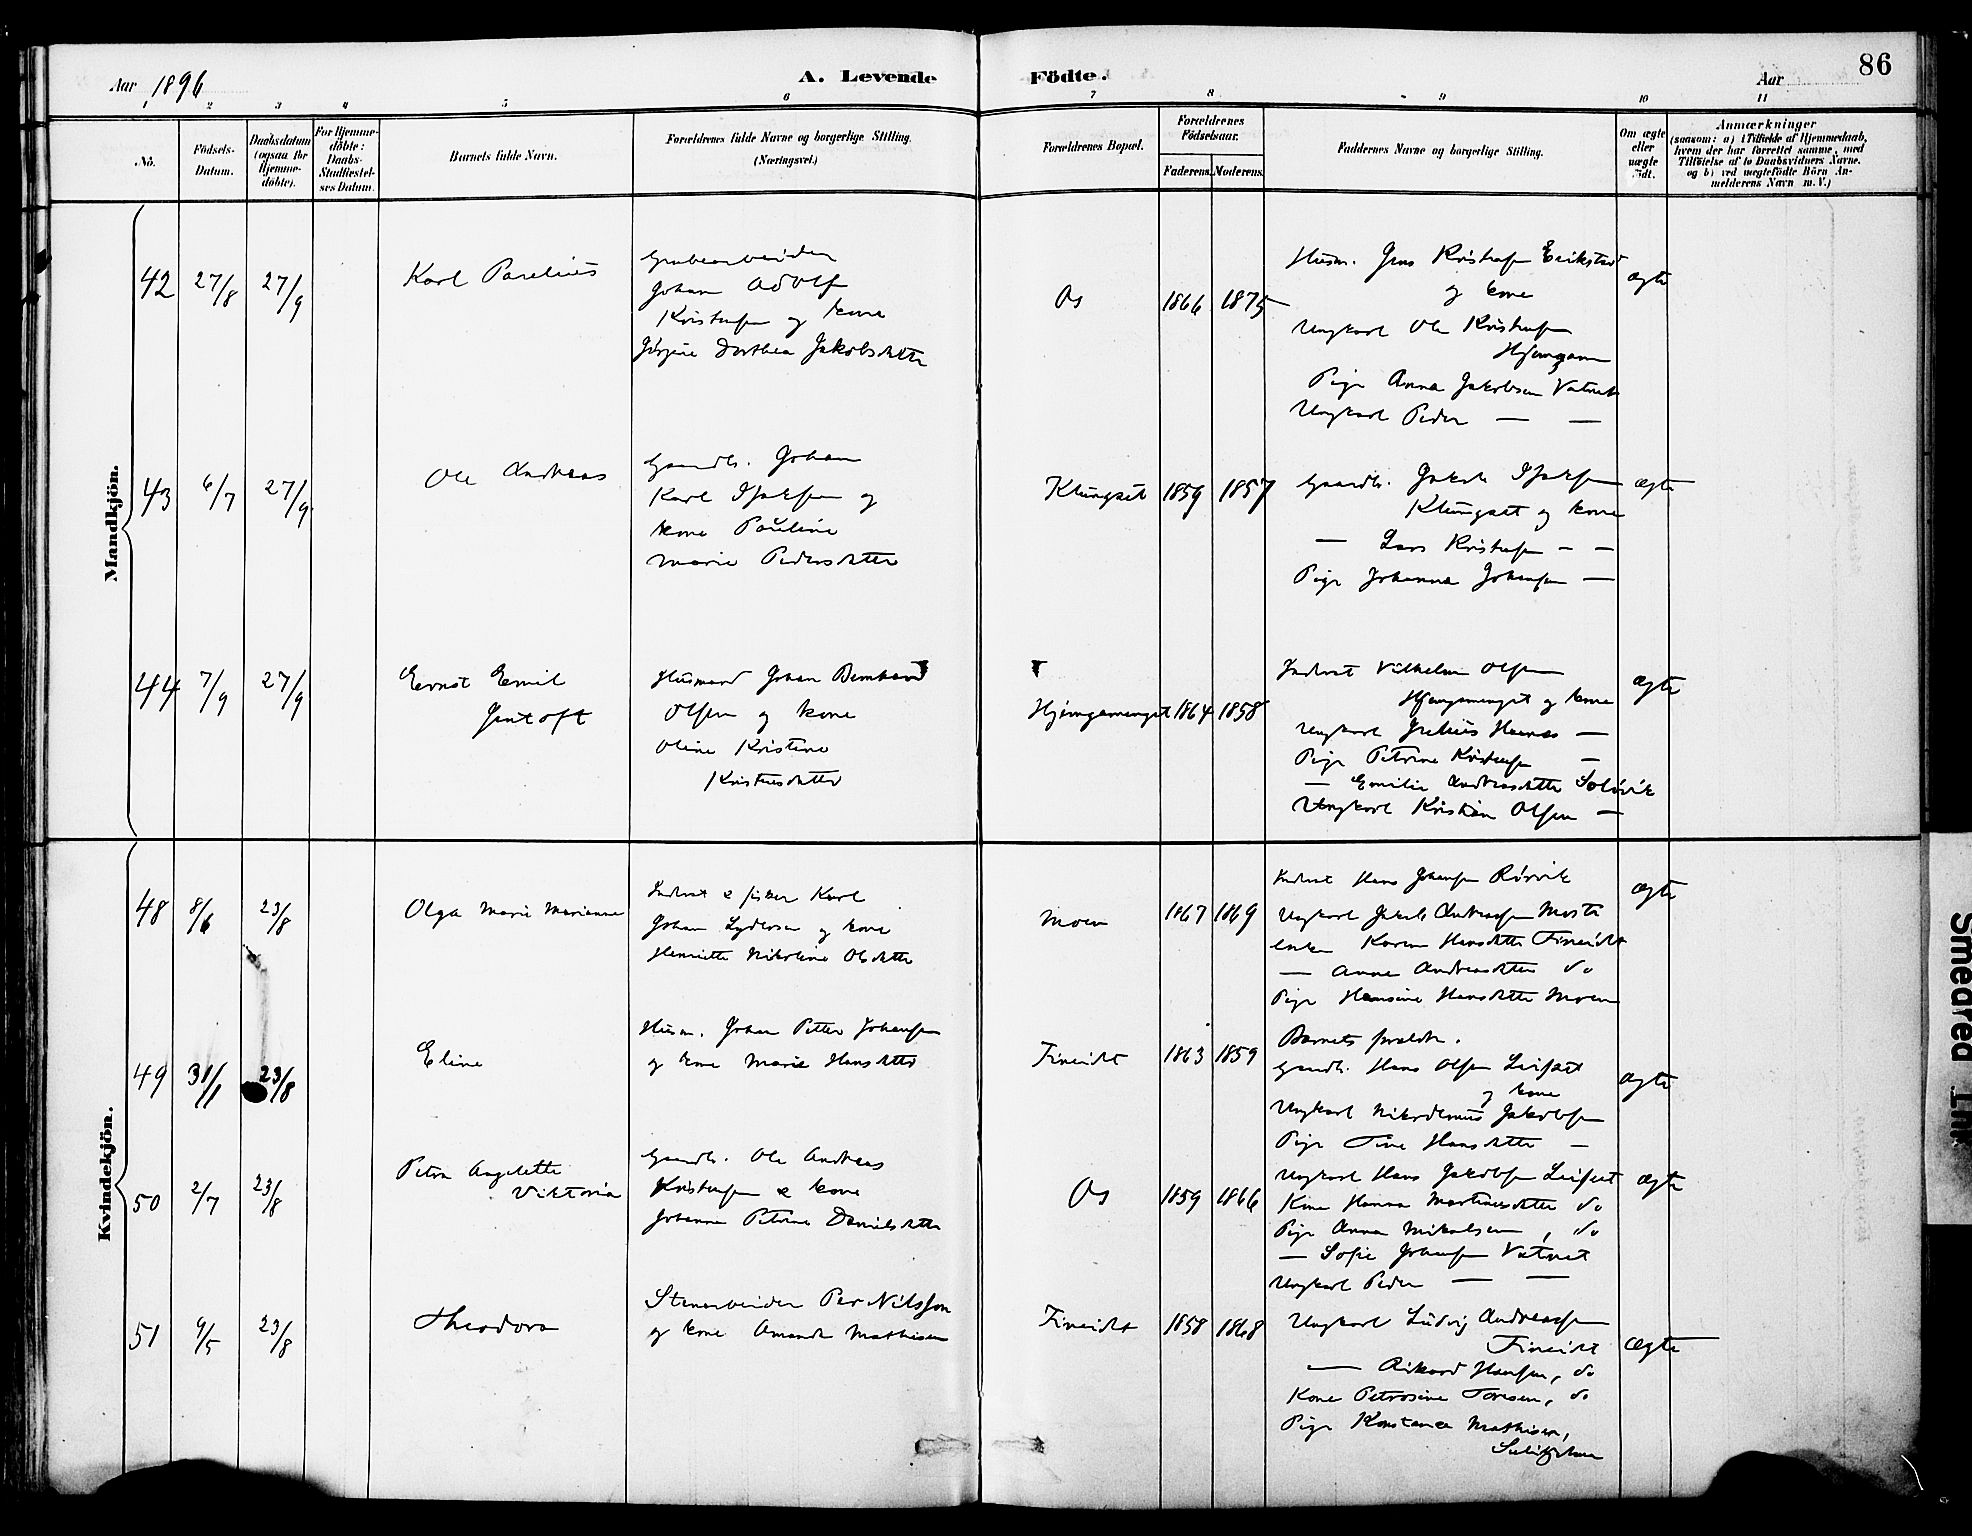 Aar 1896
A. Levende Födte.
Aar
86
2 3 4 5 6 7 8 9 10 11
No.
Födsels-Datum.
Daabsdatum (ogsaa for Hjemme-döbte).
For Hjemme-döbte: Daabs-Stadfæstel-ses Datum.
Barnets fulde Navn.
Forældrenes fulde Navne og borgerlige Stilling.
(Næringsvei.)
Forældrenes Bopæl.
Forældrenes Födselsaar.
Faderens. Moderens.
Faddernes Navne og borgerlige Stilling.
Om ægte eller uægte födt.
Anmærkninger
(saasom: a) i Tilfælde af Hjemmedaab,
hvem der har forrettet samme, med
Tilföielse af to Daabsvidners Navne,
og b) ved uægtefödte Börn An-
melderens Navn m. V.)
Mandkjön.
42 27/8 27/9 Karl Parelius
Grubearbeider
Johan Adolf
Kristensen og kone
Jörgine Dorthea Jakobsdatter
Os 1866 1875
Husm. Jens Kristensen Erikstad
og kone
Ungkarl Ole Kristensen
Pige Anna Jakobsen Vatnet
Ungkarl Peder — —
ægte
43 6/7 27/9 Ole Andreas
Gaardb. Johan
Karl Isaksen og
kone Pauline
Marie Pedersdatter
Klungset 1859 1857
Gaardb. Jakob Isaksen
Klungset og kone
— Lars Kristensen — —
Pige Johanna Johansen —
ægte
44 7/9 27/9 Ernst Emil
Gentoft
Husmand Johan Bernhard
Olsen og kone
Oline Kristine
Kristensdatter
Hjemgamenget 1864 1858
Inderst Vilhelm Olsen
Hjemgamenget og kone
Ungkarl
Pige Petrine Kristensen —
— Emilie Andreasdatter Solövik
Ungkarl Kristian Olsen —
ægte
Kvindekjön.
48 8/6 23/8 Olga Marie Marianne
Inderst & fisker Karl
Johan Lydersen og kone
Henriette Nikoline Olsdatter
Moen 1867 1869
Inderst Hans Johansen Rörvik
Ungkarl Jakob Andreasen Moste
enke Karen Hansdatter Fineidet
— Anne Andreasdatter do
Pige Hansine Hansdatter Moen
ægte
49 31/1 23/8 Eline
Husm. Johan Petter Johansen
og kone Marie Hansdatter
Fineidet 1863 1859
Barnets forældre.
Gaardb. Hans Olsen Leifset
og kone
Ungkarl Nikodemus Jakobsen
Pige Tine Hansdatter —
ægte
50 2/7 23/8 Petra Angelette
Viktoria
Gaardb. Ole Andreas
Kristensen & kone
Johanna Petrine Danielsdatter
Os 1859 1866
Ungkarl Hans Jakobsen Leifset
Kone Hanna Martinusdatter do
Pige Anna Mikalsen, do
— Sofie Johansen Vatnet
Ungkarl Peder — —
ægte
51 9/5 23/8 Theodora
Stenarbeider Per Nilsson
og kone Amanda Mathisen
Fineidet 1858 1868
Ungkarl Ludvig Andreassen
Fineidet
— Rikard Hansen, do
Kone Petrosine Toresen, do
Pige Konstance Mathisen,
Sulitjelma
ægte
Smeared Ink